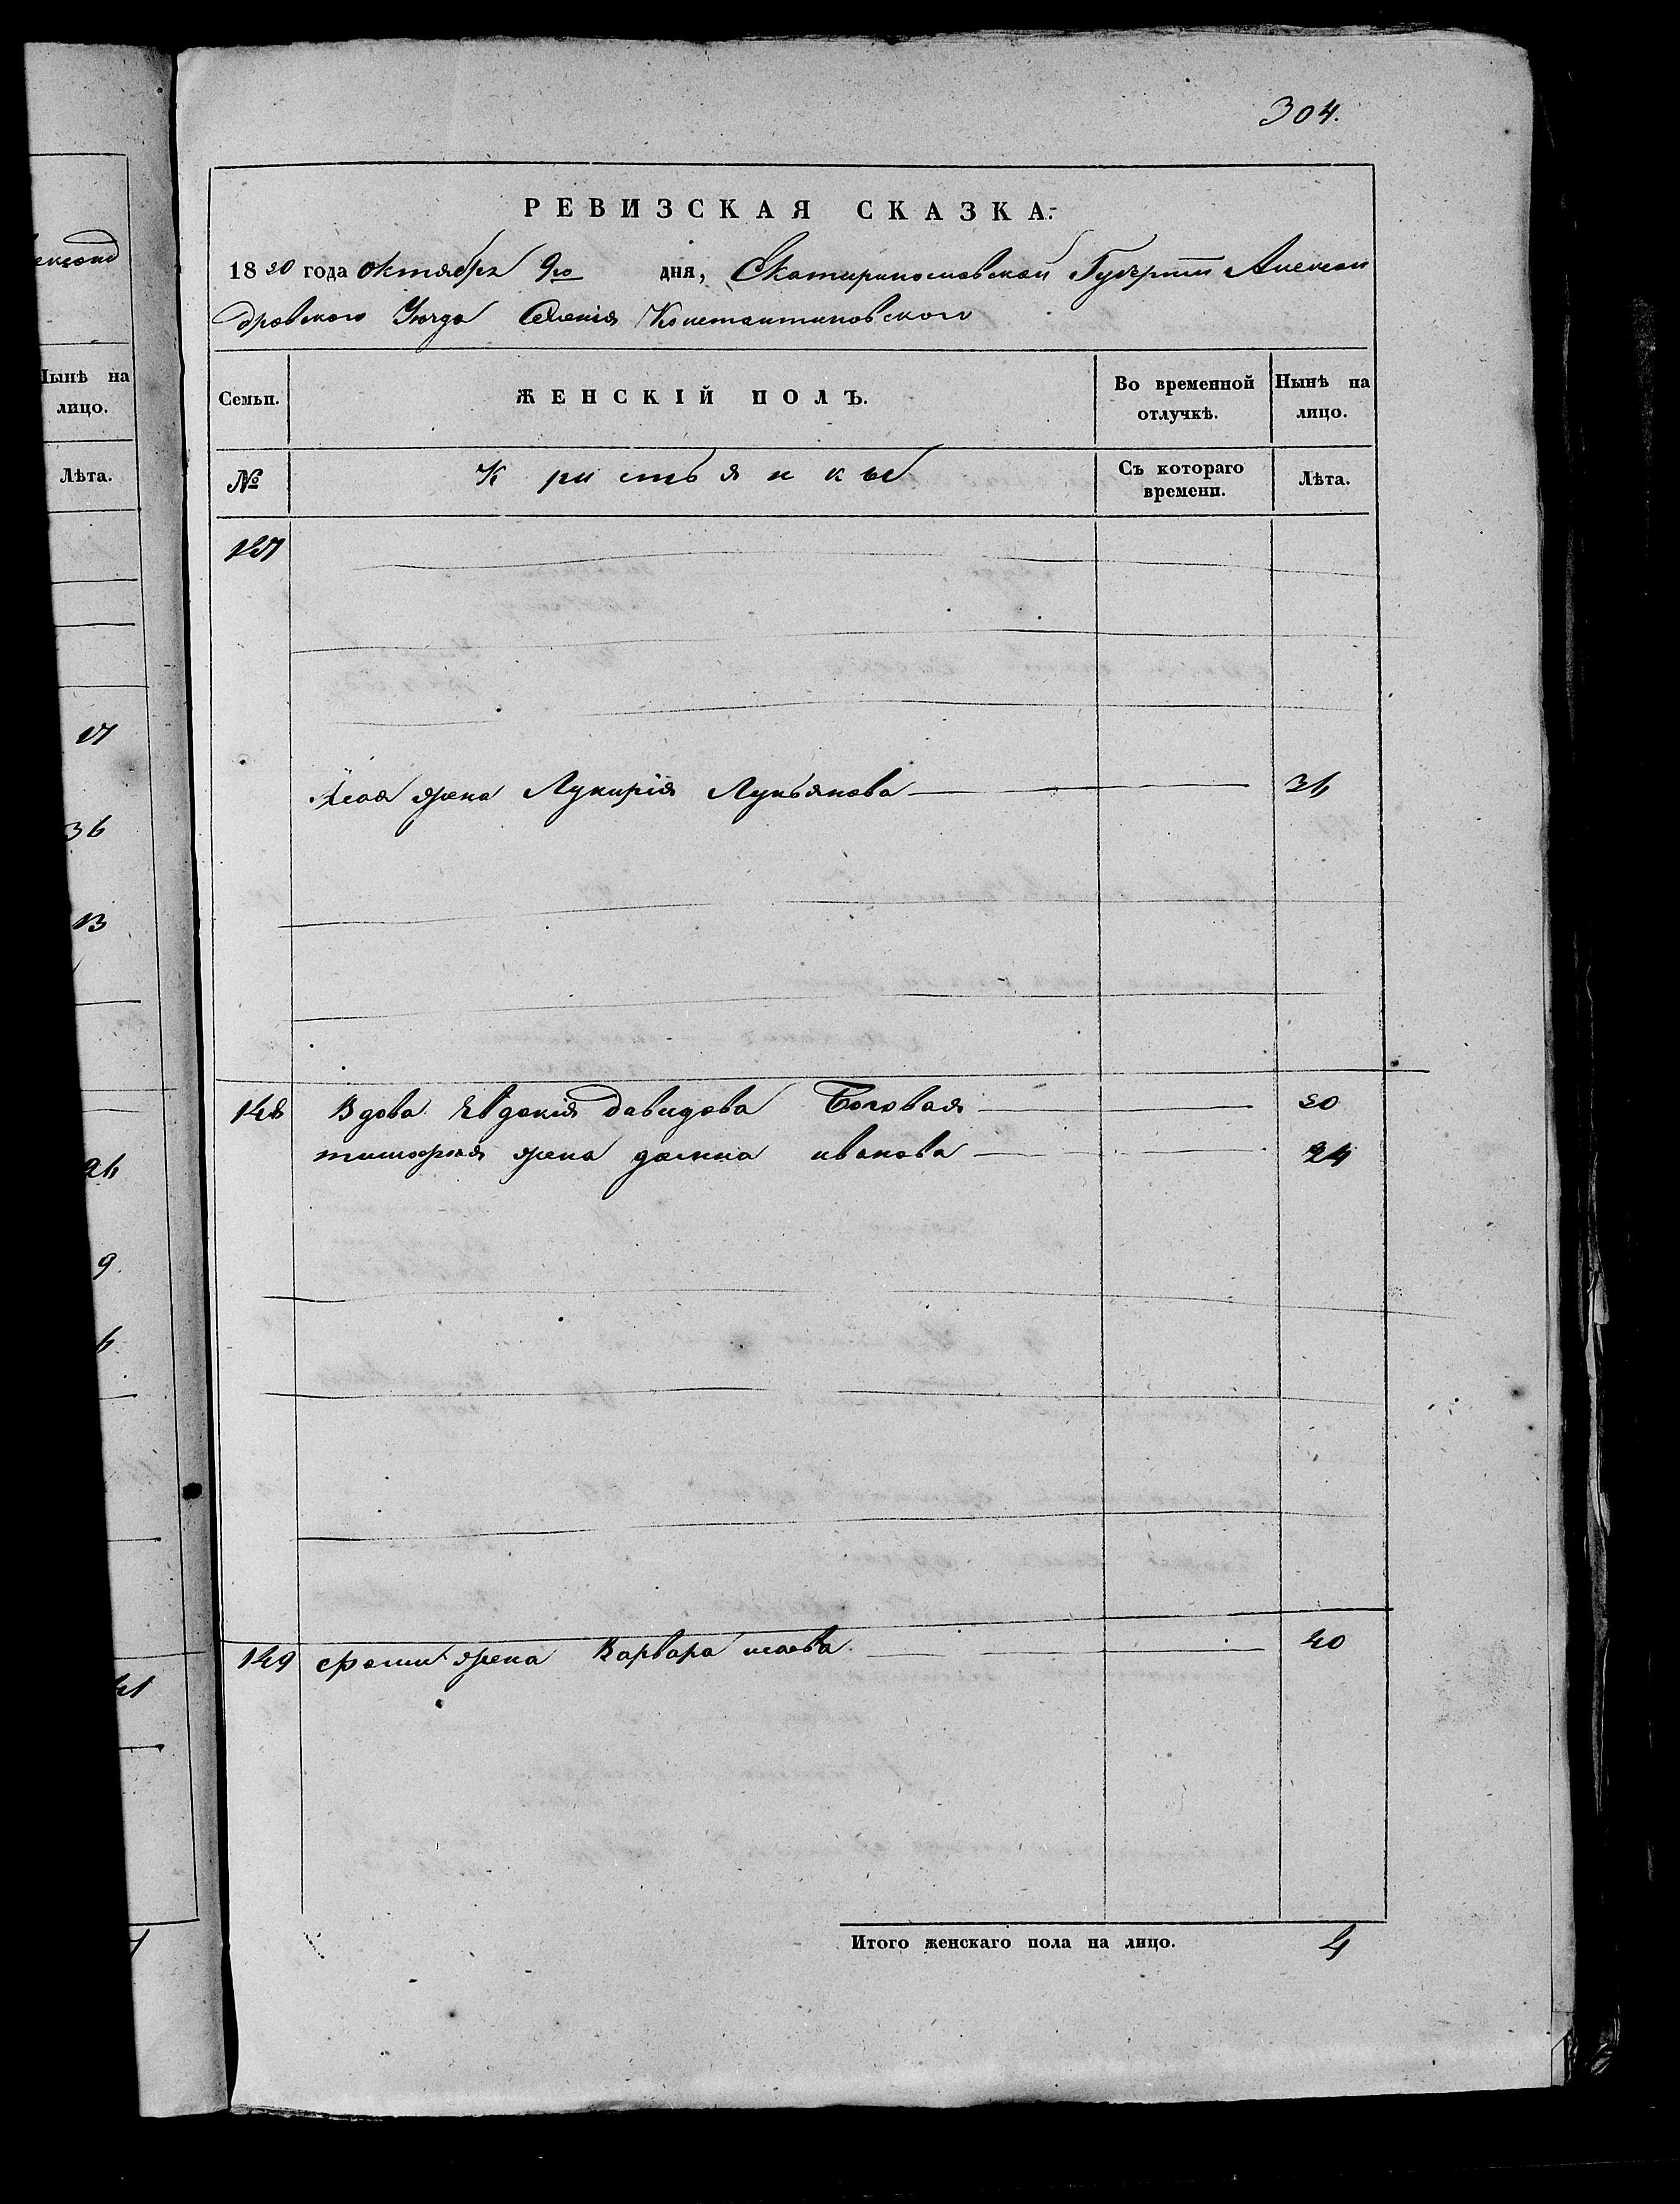 304.
РЕВИЗСКАЯ СКАЗКА.
1850 года октября 9го дня, Екатеринославской Губернии Алексан
дровского Уезда Селенія Константиновского
Семьи.
ЖЕНСКІЙ ПОЛЪ.
Во временной отлучкѣ.
Нынѣ на лицо.
№
Кристьянкы
Съ котораго времени.
Лѣта.
147
жена Лукирія Лукьянова 36
148 Вдова Явдокия Давидова Боговая 50
жена домна иванова 24
149 жена Варвара исаева 40
Итого женскаго пола на лицо. 4
Нынѣ на
лицо.
Лѣта.
17
36
13
26
9
6
41